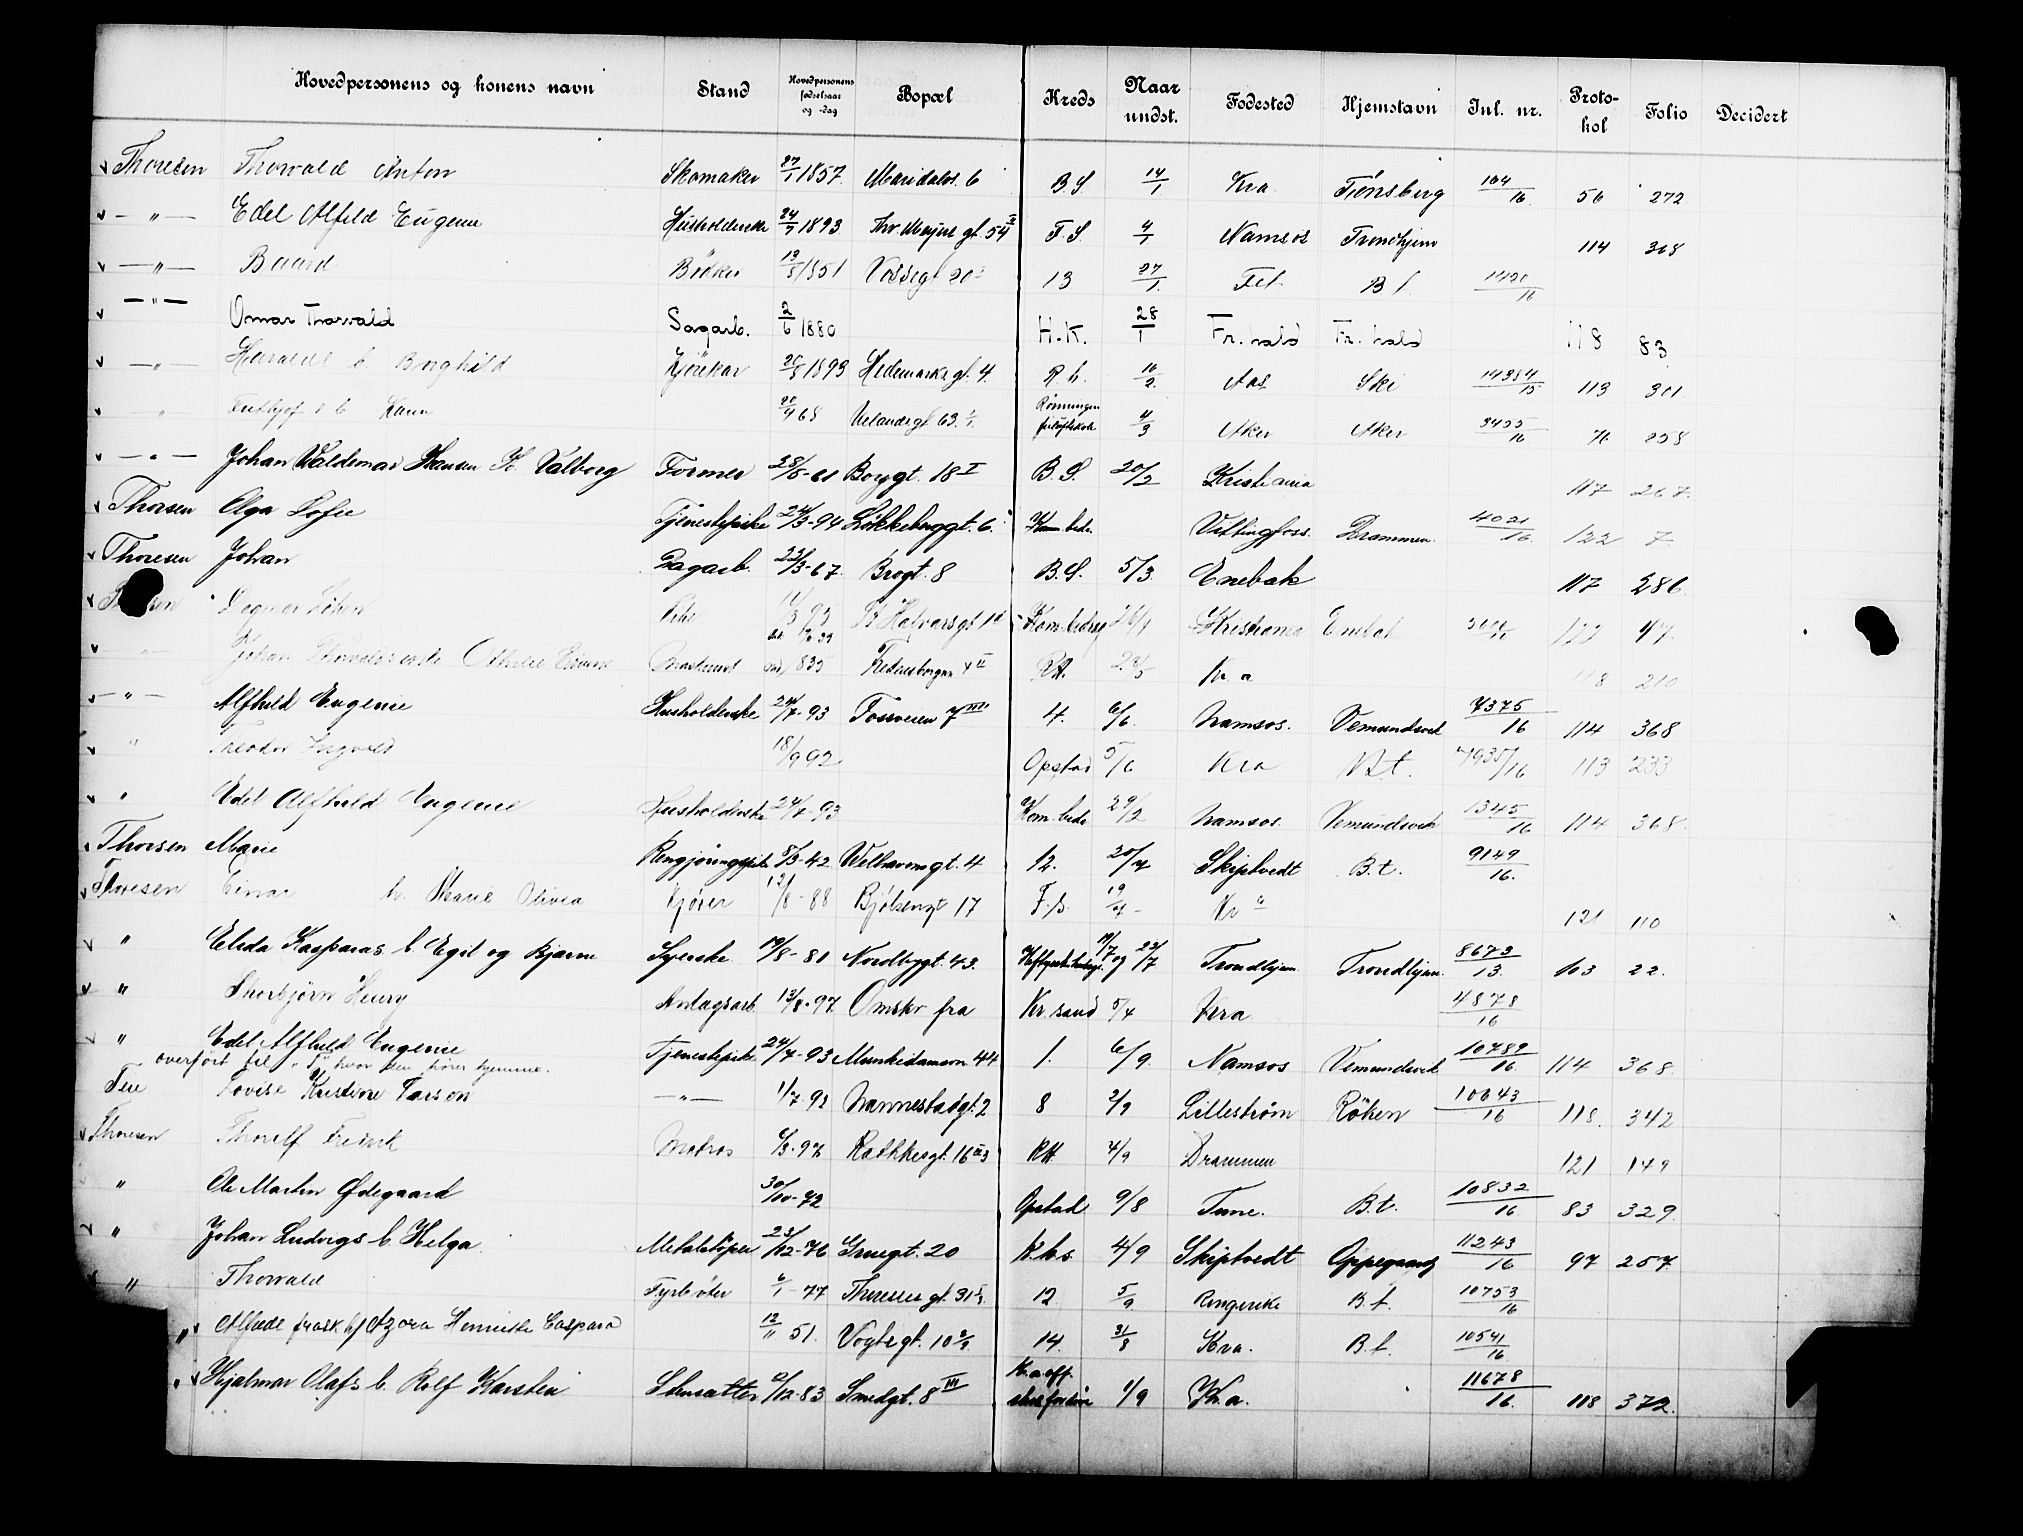 Hovedpersonens og konens navn Stand Hovedpersonens fødselsaar og -dag Bopæl Kreds Naar undst. Fødested Hjemstavn Jnl. nr. Protokol Folio Decidert
Thoresen Thorvald Anton Skomaker 27/1 1857 Maridalsv. 6 B S 14/1 Kra Tønsberg 104/16 56 272
— " — Edel Alfild Eugenie Husholderske 24/7 1893 Thv. Meyers gt. 54 F. S. 4/1 Namsos Trondhjem 114 368
— " — Baard Bødker 13/8 1851 Vossegt 20 13 27/1 Fet B t 1420/16
— " — Omar Thorvald Sagarb. 2/6 1880 H.K. 28/1 Fr. hald Fr. hald 118 83
— " — b. Borghild Kjørekar 1893 Hedemarksgt. 4. R. h. 10/2 Aas Ski 14384/15 113 301
" b. Karin 68 Uelandsgt 63 Rønningen friluftskole 4/3 Aker Aker 3455/16 76 258
— " — Johan Valdemar Hansen K. Valborg Former 28/8-61 Borggt. 18 I B. S. 20/2 Kristiania 117 267
Thorsen Olga Sofie Tjenestepike 24/3-94 Løkkeberggt. 6 Kom. bedr. Vittingfoss Drammen 4021/16 122 7
Thoresen Johan Sagarb. 22/3-67 Brogt. 8 B. S. 5/3 Enebak 117 286
Dagmar Pike 93 St Halvardsgt Kom. bedr. 26/1 Kristiania Enebak 122 47
" Johan Othilie 1835 II R.H. Kr. a 118 210
— " — Alfhild Eugenie Husholderske 24/7-93 Fossveien 7 III 4. 6/6 Namsos. Vemundsvik 7375/16 114 368
" Theodor Ingvald 18/9 92 Opstad 5/6 Kra B.t. 7935/16 113 233
" Edel Alfhild Eugenie Husholderske 24/7-93 Kom. bedr. 29/2 Namsos. Vemundsvik 1345/16 114 368
Thorsen Marie Rengjøringspike 5/3-42 Welhavensgt. 4 12. 20/7 Skiptvedt B.t. 9149/16
Thoresen Einar h. Marie Olivia Kjører 12/8-88 Bjølsengt 17 F.s. 19/7 Kr a 121 110
" Elida Kasparas b. Egil og Bjarne Syerske 19/8-81 Nordbygt. 43 19/7 og 22/7 Trondhjem Trondhjem 8673/13 103 22
" Thorbjørn Henry Anlagsarb. 13/8-97 Omskr fra Kr. sand 5/7 Kra 4878/16
" Edel Alfhild Eugenie Tjenestepike 24/7-93 Munkedamsvn 44 1. 6/9. Namsos Vemundsvik 10789/16 114 368
overført til "T" hvor den hører hjemme.
Tere Lovise Kristine Larsen — " — 1/7-93 Nannestadgt. 2 8 2/9 Lillestrøm Røken 10643/16 118. 342
Thoresen Thoralf Fredrik Matros 6/3-97 Rathkesgt. 16 III 3 RH 4/9 Drammen 121 149
" Ole Martin Ødegaard 30/10-72 Opstad 9/8 Tune. B.t. 10832/16 83 329
" Johan Ludvigs b. Helga Metalstøper 23/12-76 Gruegt. 20 K.k.s. 4/9 Skiptvedt Oppegaard 11243/16 97 257
" Thorvald Fyrbøter 6/1-77 Theresesgt. 31 12 5/9 Ringerike B.t. 10753/16
" Alfride frask h/ Azora Henriette Caspara 12/11 51. Vogtsgt. 10 14 31/8 Kra. B.t. 10541/16
Hjalmar Olafs b. Rolf Karsten Stensætter 2/12-83 Smedgt. 8 III 1/9 Kr.a. 11678/16 118 372.